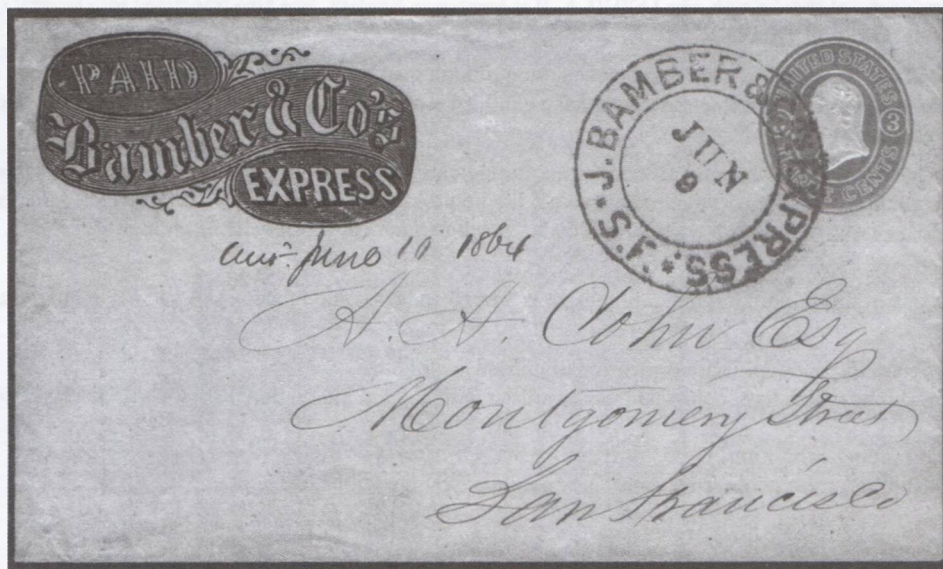 PAID
Bamber & Co's
EXPRESS
J. BAMBER & CO'S EXPRESS. S.F.
JUN
9
UNITED STATES
3
CENTS
June 10 1864
A. A. Cohn Esq
Montgomery Street
San Francisco